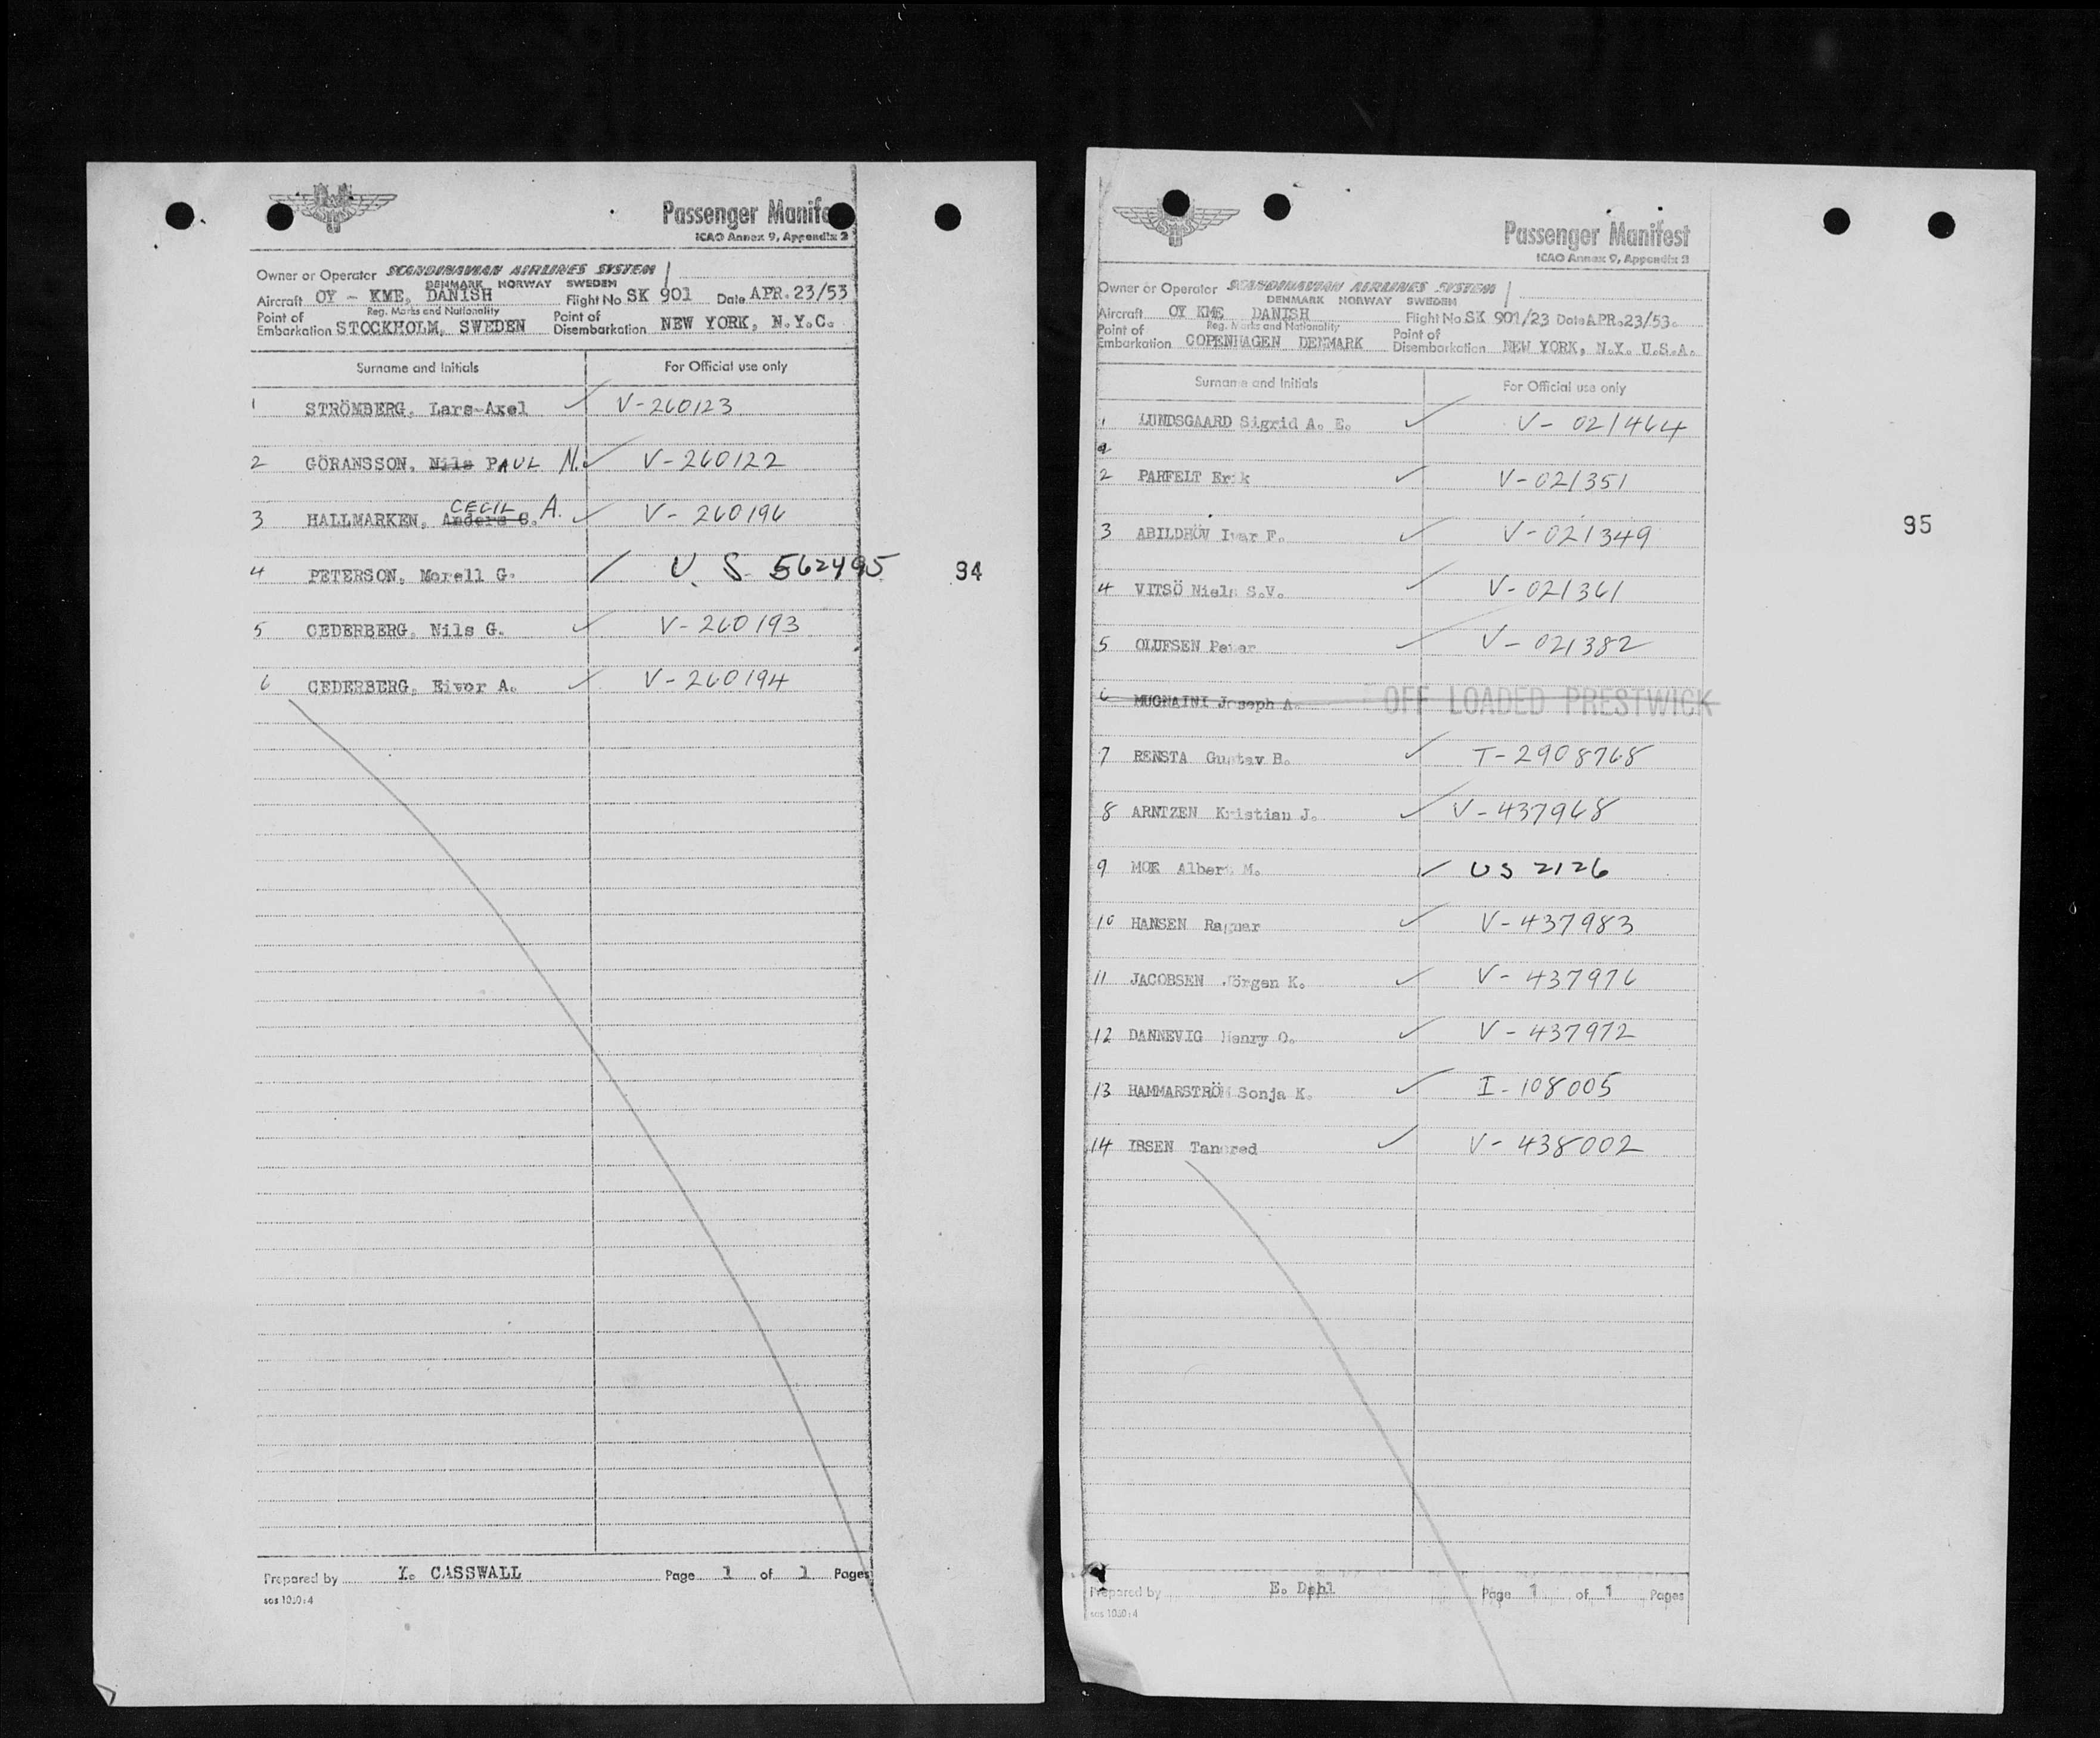 Passenger Manife
ICAO Annex 9, Appendix 2
Owner or Operator SCANDINAVIAN AIRLINES SYSTEM
DENMARK NORWAY SWEDEN
Aircraft OY - KME, DANISH Flight No SK 901 Date APR.23/53
Reg. Marks and Nationality
Point of Embarkation STOCKHOLM, SWEDEN Point of Disembarkation NEW YORK, N.Y.C.
Surname and Initials For Official use only
1 STRÖMBERG, Lars-Axel ✓ V-260123
2 GÖRANSSON, Nils PAUL N. ✓ V-260122
CECIL
3 HALLMARKEN, Anders C. A. ✓ V-260196
4 PETERSON, Morell G. / U.S. 562495
94
5 CEDERBERG, Nils G. ✓ V-260193
6 CEDERBERG, Eivor A. ✓ V-260194
Prepared by Y. CASSWALL Page 1 of 1 Pages
Passenger Manifest
ICAO Annex 9, Appendix 2
Owner or Operator SCANDINAVIAN AIRLINES SYSTEM
DENMARK NORWAY SWEDEN
Aircraft OY KME DANISH Flight No SK 901/23 Date APR.23/53.
Reg. Marks and Nationality
Point of Embarkation COPENHAGEN DENMARK Point of Disembarkation NEW YORK, N.Y. U.S.A.
Surname and Initials For Official use only
1 LUNDSGAARD Sigrid A. E. ✓ V-021464
2 PARFELT Erik ✓ V-021351
3 ABILDHÖV Ivar F. ✓ V-021349
95
4 VITSÖ Niels S.V. ✓ V-021361
5 OLUFSEN Peter ✓ V-021382
6 MUGNAINI Joseph A. OFF LOADED PRESTWICK
7 RENSTA Gustav B. ✓ T-2908768
8 ARNTZEN Kristian J. ✓ V-437968
9 MOE Albert M. ✓ US 2126
10 HANSEN Ragnar ✓ V-437983
11 JACOBSEN Jörgen K. ✓ V-437976
12 DANNEVIG Henry O. ✓ V-437972
13 HAMMARSTRÖM Sonja K. ✓ I-108005
14 IBSEN Tancred ✓ V-438002
Prepared by E. Dahl Page 1 of 1 Pages